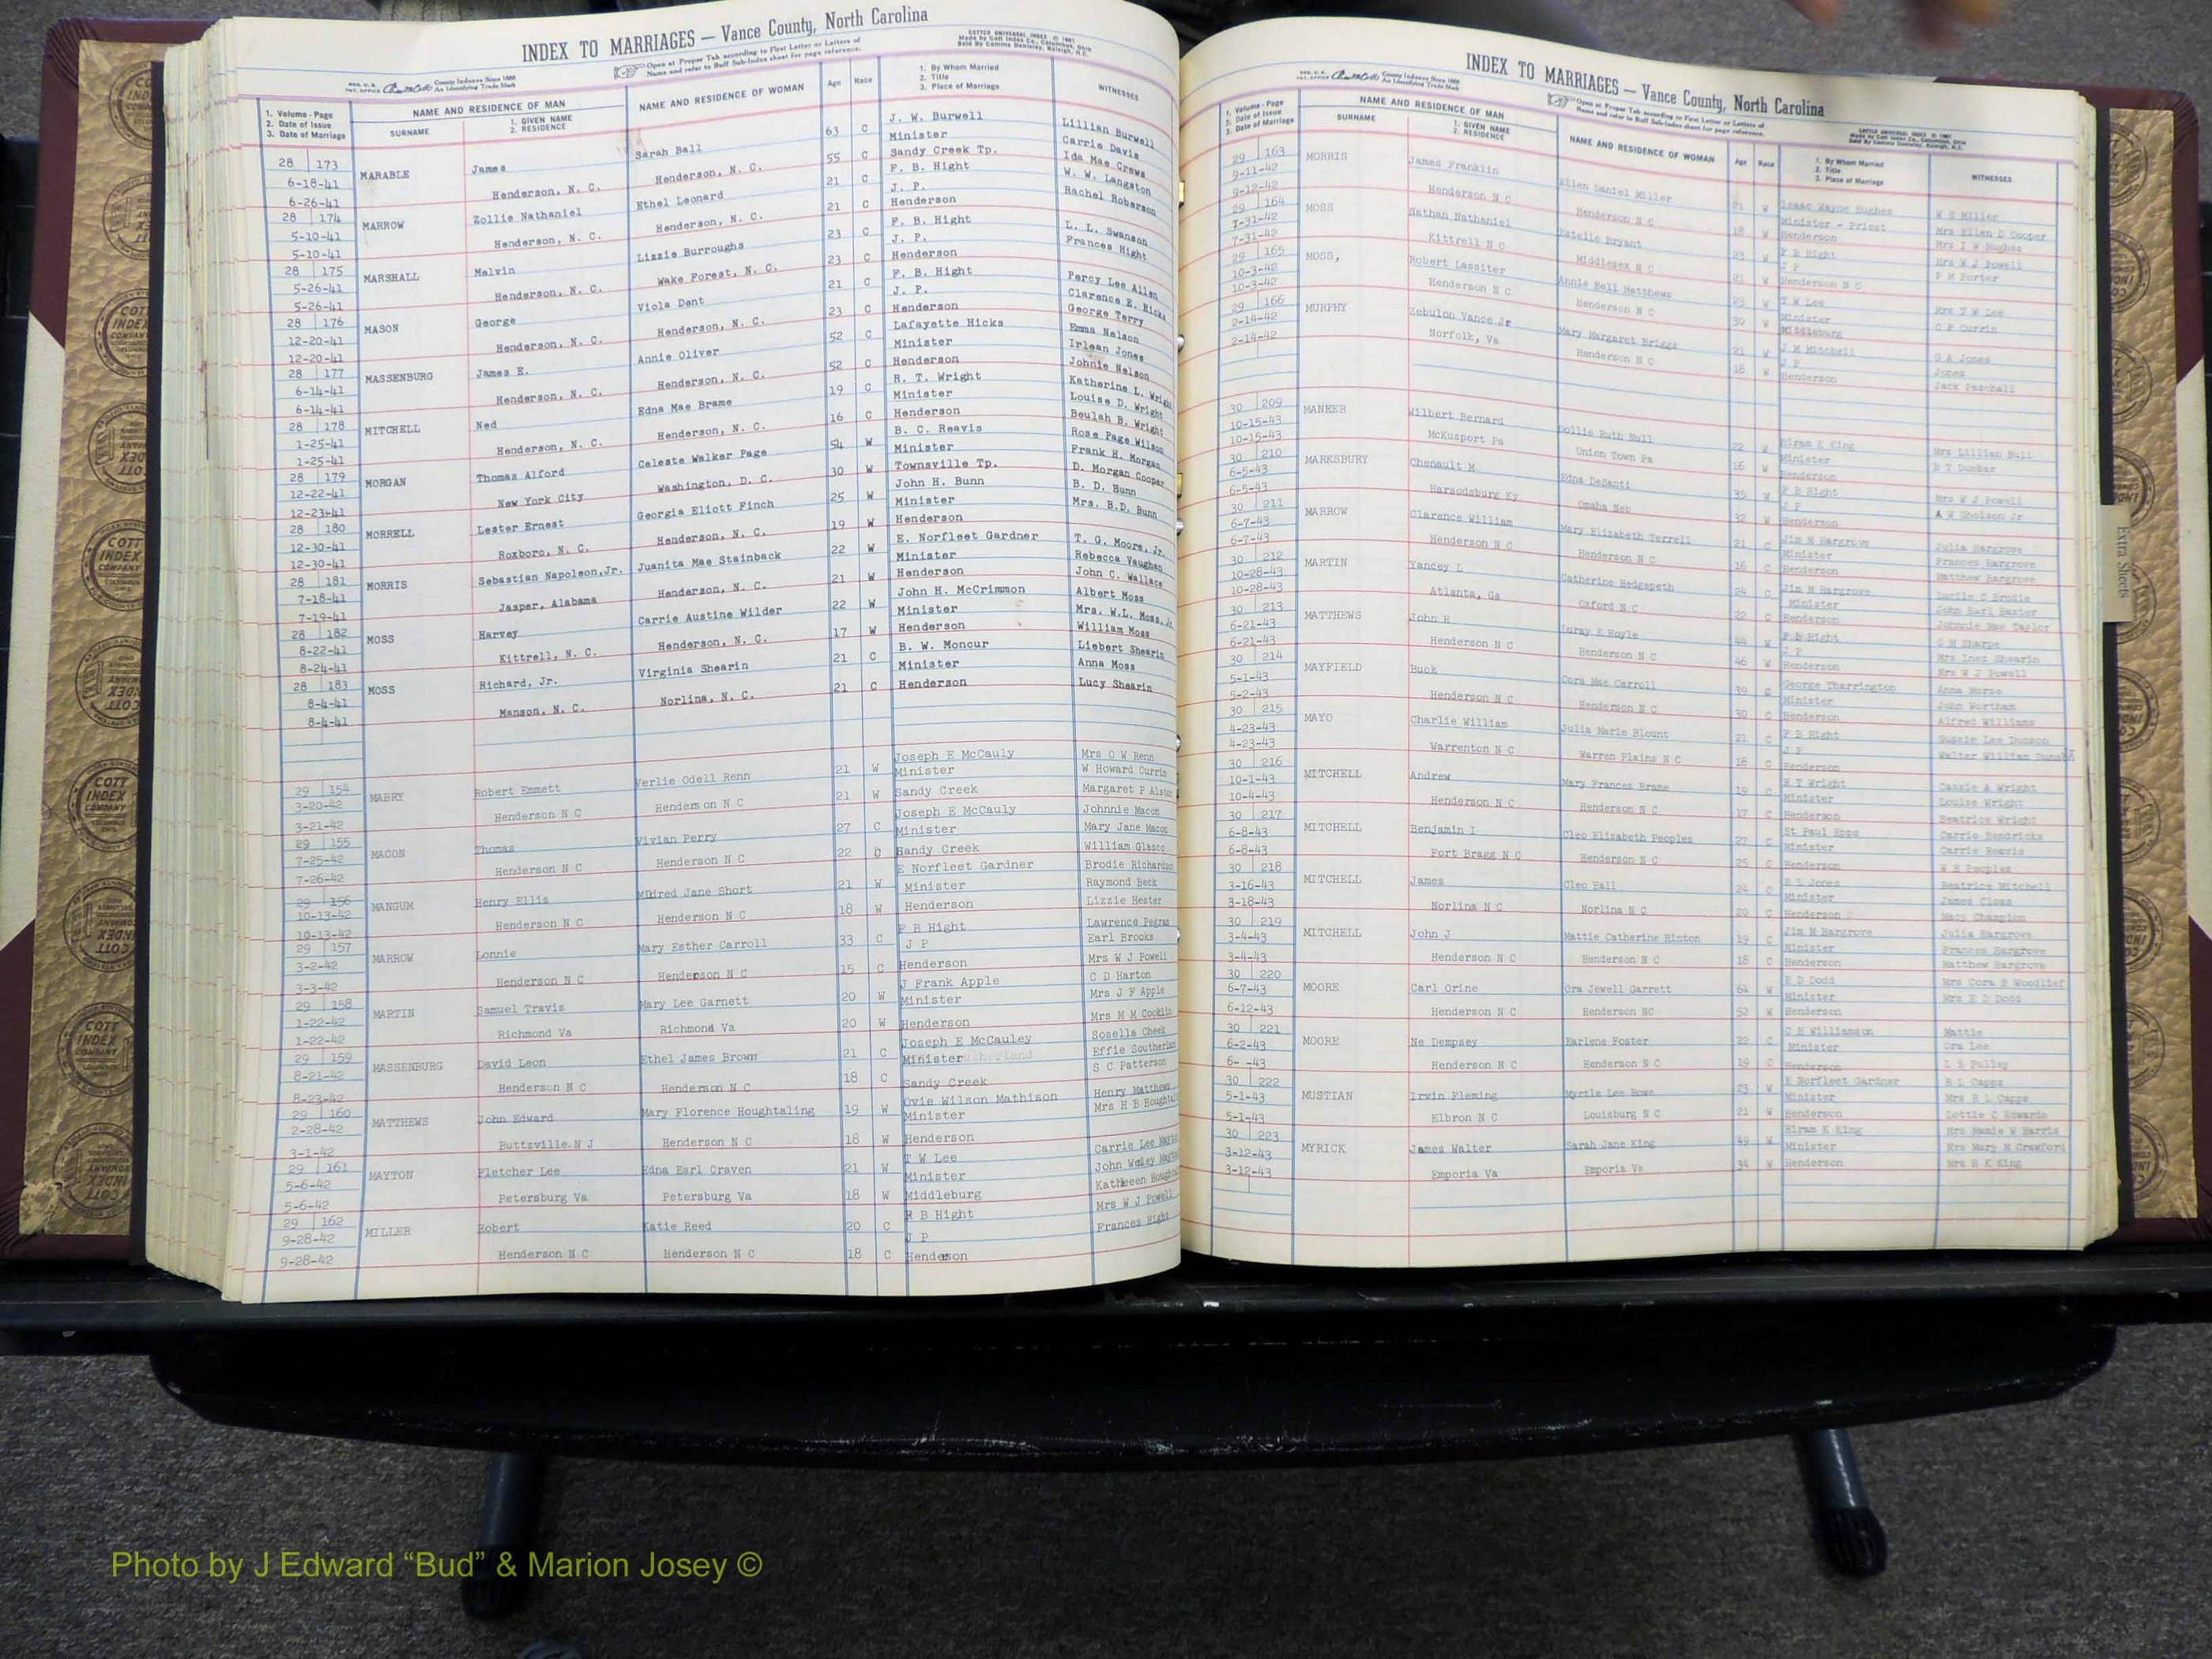 INDEX TO MARRIAGES — Vance County, North Carolina
Open at Proper Tab according to First Letter or Letters of
Name and refer to Buff Sub-Index sheet for page reference.
County Indexes Since 1888
An Identifying Trade Mark
1. Volume - Page
2. Date of Issue
3. Date of Marriage
NAME AND RESIDENCE OF MAN
SURNAME
1. GIVEN NAME
2. RESIDENCE
NAME AND RESIDENCE OF WOMAN
Age
Race
1. By Whom Married
2. Title
3. Place of Marriage
WITNESSES
28 173 MARABLE James Sarah Ball 63 C J. W. Burwell Lillian Burwell
6-18-41 Henderson, N. C. Henderson, N. C. 55 C Minister Carrie Davis
6-26-41 Sandy Creek Tp. Ida Mae Crews
28 174 MARROW Zollie Nathaniel Ethel Leonard 21 C F. B. Hight W. W. Langston
5-10-41 Henderson, N. C. Henderson, N. C. 21 C J. P. Rachel Roberson
5-10-41 Henderson
28 175 MARSHALL Melvin Lizzie Burroughs 23 C F. B. Hight L. L. Swanson
5-26-41 Henderson, N. C. Wake Forest, N. C. 23 C J. P. Frances Hight
5-26-41 Henderson
28 176 MASON George Viola Dent 21 C F. B. Hight Percy Lee Allen
12-20-41 Henderson, N. C. Henderson, N. C. 23 C J. P. Clarence E. Hicks
12-20-41 Henderson George Terry
28 177 MASSENBURG James E. Annie Oliver 52 C Lafayette Hicks Emma Nelson
6-14-41 Henderson, N. C. Henderson, N. C. 52 C Minister Irlean Jones
6-14-41 Henderson Johnie Nelson
28 178 MITCHELL Ned Edna Mae Brame 19 C R. T. Wright Katherine L. Wright
1-25-41 Henderson, N. C. Henderson, N. C. 16 C Minister Louise D. Wright
1-25-41 Henderson Beulah B. Wright
28 179 MORGAN Thomas Alford Celeste Walker Page 54 W B. C. Reavis Rose Page Wilson
12-22-41 New York City Washington, D. C. 30 W Minister Frank H. Morgan
12-23-41 Townsville Tp. D. Morgan Cooper
28 180 MORRELL Lester Ernest Georgia Eliott Finch 25 W John H. Bunn B. D. Bunn
12-30-41 Roxboro, N. C. Henderson, N. C. 19 W Minister Mrs. B.D. Bunn
12-30-41 Henderson
28 181 MORRIS Sebastian Napoleon,Jr. Juanita Mae Stainback 22 W E. Norfleet Gardner T. G. Moore, Jr.
7-18-41 Jasper, Alabama Henderson, N. C. 21 W Minister Rebecca Vaughan
7-19-41 Henderson John C. Wallace
28 182 MOSS Harvey Carrie Austine Wilder 22 W John H. McCrimmon Albert Moss
8-22-41 Kittrell, N. C. Henderson, N. C. 17 W Minister Mrs. W.L. Moss, Jr.
8-24-41 Henderson William Moss
28 183 MOSS Richard, Jr. Virginia Shearin 21 C B. W. Moncur Liebert Shearin
8-4-41 Manson, N. C. Norlina, N. C. 21 C Minister Anna Moss
8-4-41 Henderson Lucy Shearin
29 154 MABRY Robert Emmett Verlie Odell Renn 21 W Joseph E McCauly Mrs O W Renn
3-20-42 Henderson N C Henderson N C 21 W Minister W Howard Currin
3-21-42 Sandy Creek Margaret P Alston
29 155 MACON Thomas Vivian Perry 27 C Joseph E McCauly Johnnie Macon
7-25-42 Henderson N C Henderson N C 22 C Minister Mary Jane Macon
7-26-42 Sandy Creek William Glasco
29 156 MANGUM Henry Ellis Mildred Jane Short 21 W E Norfleet Gardner Brodie Richardson
10-13-42 Henderson N C Henderson N C 18 W Minister Raymond Beck
10-13-42 Henderson Lizzie Hester
29 157 MARROW Lonnie Mary Esther Carroll 33 C F B Hight Lawrence Pegram
3-2-42 Henderson N C Henderson N C 15 C J P Earl Brooks
3-3-42 Henderson Mrs W J Powell
29 158 MARTIN Samuel Travis Mary Lee Garnett 20 W J Frank Apple C D Harton
1-22-42 Richmond Va Richmond Va 20 W Minister Mrs J F Apple
1-22-42 Henderson Mrs M M Cooklin
29 159 MASSENBURG David Leon Ethel James Brown 21 C Joseph E McCauley Sosella Cheek
8-21-42 Henderson N C Henderson N C 18 C Minister Effie Southerland
8-23-42 Sandy Creek S C Patterson
29 160 MATTHEWS John Edward Mary Florence Houghtaling 19 W Ovie Wilson Mathison Henry Matthews
2-28-42 Buttzville N J Henderson N C 18 W Minister Mrs H B Houghtal
3-1-42 Henderson
29 161 MAYTON Fletcher Lee Edna Earl Craven 21 W T W Lee Carrie Lee
5-6-42 Petersburg Va Petersburg Va 18 W Minister John Wesley
5-6-42 Middleburg Kathleen
29 162 MILLER Robert Katie Reed 20 C R B Hight Mrs W J Powell
9-28-42 Henderson N C Henderson N C 18 C J P Frances Hight
9-28-42 Henderson
INDEX TO MARRIAGES — Vance County, North Carolina
Open at Proper Tab according to First Letter or Letters of
Name and refer to Buff Sub-Index sheet for page reference.
1. Volume - Page
2. Date of Issue
3. Date of Marriage
NAME AND RESIDENCE OF MAN
SURNAME
1. GIVEN NAME
2. RESIDENCE
NAME AND RESIDENCE OF WOMAN
Age
Race
1. By Whom Married
2. Title
3. Place of Marriage
WITNESSES
29 163 MORRIS James Franklin Ellen Daniel Miller 21 W Isaac Wayne Hughes W S Miller
9-11-42 Henderson N C Henderson N C 18 W Minister - Priest Mrs Ellen D Cooper
9-12-42 Henderson Mrs I W Hughes
29 164 MOSS Nathan Nathaniel Estelle Bryant 23 W F B Hight Mrs W J Powell
7-31-42 Kittrell N C Middlesex N C 21 W J P P M Porter
7-31-42 Henderson N C
29 165 MOSS, Robert Lassiter Annie Bell Matthews 23 W T W Lee Mrs T W Lee
10-3-42 Henderson N C Henderson N C 30 W Minister C F Currin
10-3-42 Middleburg
29 166 MURPHY Zebulon Vance Jr Mary Margaret Briggs 21 W J M Mitchell G A Jones
2-14-42 Norfolk, Va Henderson N C 18 W J P Jones
2-14-42 Henderson Jack Paschall
30 209 MANEER Wilbert Bernard Dollie Ruth Null 22 W Hiram K King Mrs Lillian Null
10-15-43 McKusport Pa Union Town Pa 16 W Minister B T Dunbar
10-15-43 Henderson
30 210 MARKSBURY Chenault M Edna DeSanti 35 W F B Hight Mrs W J Powell
6-5-43 Harsodsburg Ky Omaha Neb 32 W J P A W Gholson Jr
6-5-43 Henderson
30 211 MARROW Clarence William Mary Elizabeth Terrell 21 C Jim M Hargrove Julia Hargrove
6-7-43 Henderson N C Henderson N C 16 C Minister Frances Hargrove
6-7-43 Henderson Matthew Hargrove
30 212 MARTIN Yancey L Catherine Hedgepeth 24 C Jim M Hargrove Lucile C Brodie
10-28-43 Atlanta, Ga Oxford N C 22 C Minister John Earl Baxter
10-28-43 Henderson Johnnie Mae Taylor
30 213 MATTHEWS John H Luray E Hoyle 44 W F B Hight G M Sharpe
6-21-43 Henderson N C Henderson N C 46 W J P Mrs Inez Shearin
6-21-43 Henderson Mrs W J Powell
30 214 MAYFIELD Buck Cora Mae Carroll 39 C George Tharrington Anna Morse
5-1-43 Henderson N C Henderson N C 30 C Minister John Wortham
5-2-43 Henderson Alfred Williams
30 215 MAYO Charlie William Julia Marie Blount 21 C F B Hight Gussie Lee Dunson
4-23-43 Warrenton N C Warren Plains N C 18 C J P Walter William Dunson
4-23-43 Henderson
30 216 MITCHELL Andrew Mary Frances Brame 19 C R T Wright Cassie A Wright
10-1-43 Henderson N C Henderson N C 17 C Minister Louise Wright
10-4-43 Henderson Beatrice Wright
30 217 MITCHELL Benjamin I Cleo Elizabeth Peoples 27 C St Paul Epps Carrie Hendricks
6-8-43 Fort Bragg N C Henderson N C 25 C Minister Carrie Reavis
6-8-43 Henderson W H Peoples
30 218 MITCHELL James Cleo Hall 24 C E L Jones Beatrice Mitchell
3-16-43 Norlina N C Norlina N C 20 C Minister James Closs
3-18-43 Henderson Mary Champion
30 219 MITCHELL John J Mattie Catherine Hinton 19 C Jim M Hargrove Julia Hargrove
3-4-43 Henderson N C Henderson N C 18 C Minister Frances Hargrove
3-4-43 Henderson Matthew Hargrove
30 220 MOORE Carl Orine Ora Jewell Garrett 64 W E D Dodd Mrs Cora B Woodlief
6-7-43 Henderson N C Henderson NC 52 W Minister Mrs E D Dodd
6-12-43 Henderson
30 221 MOORE Ne Dempsey Earlene Foster 22 C C E Williamson Mattie
6-2-43 Henderson N C Henderson N C 19 C Minister Ora Lee
6- -43 Henderson L E Pulley
30 222 MUSTIAN Irvin Fleming Myrtle Lee Rowe 23 W E Norfleet Gardner R L Capps
5-1-43 Elbron N C Louisburg N C 21 W Minister Mrs R L Capps
5-1-43 Henderson Lottie C Edwards
30 223 MYRICK James Walter Sarah Jane King 49 W Hiram K King Mrs Mamie W Harris
3-12-43 Emporia Va Emporia Va 34 W Minister Mrs Mary M Crawford
3-12-43 Henderson Mrs H K King
Extra Sheets
COTT INDEX COMPANY
Photo by J Edward “Bud” & Marion Josey ©